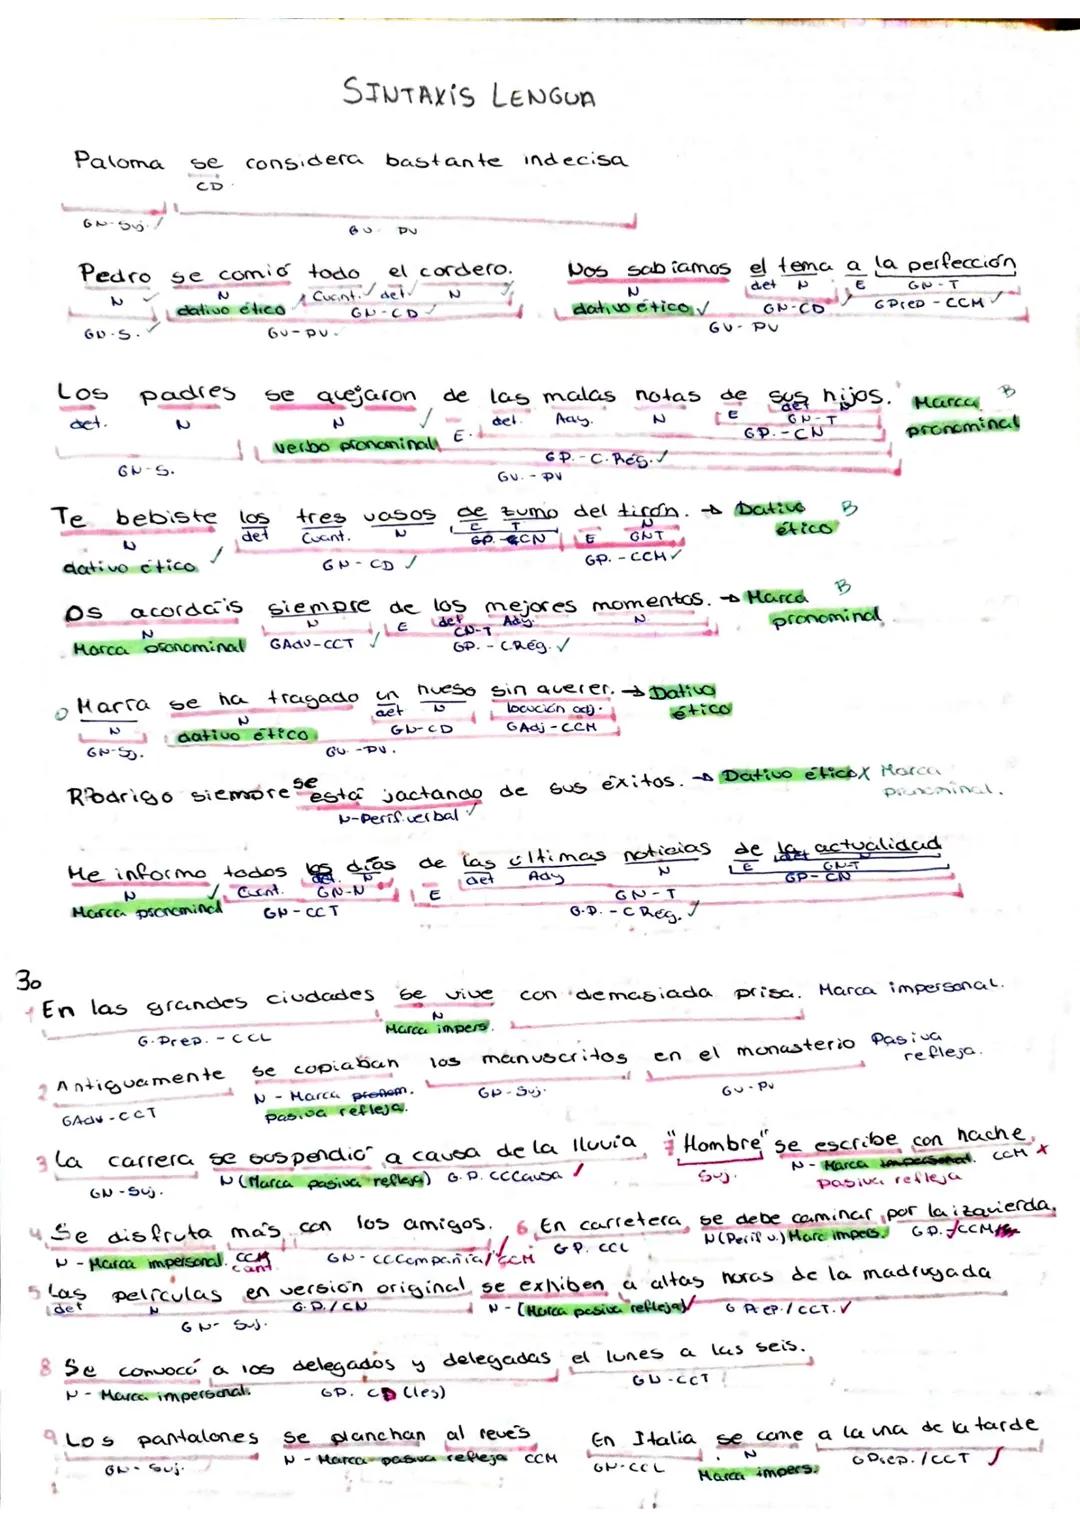 SINTAXIS LENGUA
Paloma se considera bastante indecisa
CD
GN-Suj. GV PV
Pedro se comió todo el cordero. Nos sabíamos el tema a la perfección
N N Cuant. det. N N det N E GN-T
dativo ético GN-CD dativo ético GN-CD GPrep-CCM
GN-S. GV-PV. GV-PV
Los padres se quejaron de las malas notas de sus hijos. Marca pronominal B
det. N N E. det. Ady. N E det N
verbo pronominal GN-T
GP.-CN
GN-S. GP.-C.Rég.
GV.-PV
Te bebiste los tres vasos de zumo del tirón. → Dativo ético B
N det Cuant. N E T E N
GP.-CN GNT
dativo ético GN-CD GP.-CCM
Os acordáis siempre de los mejores momentos. → Marca pronominal B
N N E det Ady. N
Marca pronominal GAdv-CCT GN-T
GP.-C.Rég.
María se ha tragado un hueso sin querer. → Dativo ético
N N det N locución adj.
GN-Sj. dativo ético GN-CD GAdj-CCM
GV.-PV.
Rodrigo siempre se está jactando de sus éxitos. → Dativo ético X Marca pronominal.
N-Perif.verbal
Me informo todos los días de las últimas noticias de la actualidad
N Cuant. det. N E det Ady N E det N
GN-N GN-T
GP-CN
Marca pronominal GN-CCT GN-T
G.P.-C Rég.
30
1 En las grandes ciudades se vive con demasiada prisa. Marca impersonal.
G.Prep.-CCL N
Marca impers.
2 Antiguamente se copiaban los manuscritos en el monasterio Pasiva refleja.
GAdv-CCT N-Marca pronom. GN-Suj. GV-PV
pasiva refleja.
3 La carrera se suspendió a causa de la lluvia 7 "Hombre" se escribe con hache.
GN-Suj. N (Marca pasiva refleja) G.P. CCCausa Suj. N-Marca impersonal. CCM X
pasiva refleja
4 Se disfruta más con los amigos. 6 En carretera, se debe caminar por la izquierda.
N-Marca impersonal. CCM Cant. GN-CCCompañía/CCM GP. CCL N (Perif v.) Marc impers. G.P./CCM
5 Las películas en versión original se exhiben a altas horas de la madrugada
det N G.P./CN N-(Marca pasiva refleja) G Prep./CCT.
GN-Suj.
8 Se convocó a los delegados y delegadas el lunes a las seis.
N-Marca impersonal. GP. CD (les) GN-CCT
9 Los pantalones se planchan al revés En Italia se come a la una de la tarde
GN-Suj. N-Marca pasiva refleja CCM GN-CCL N GPrep./CCT
Marca impers.